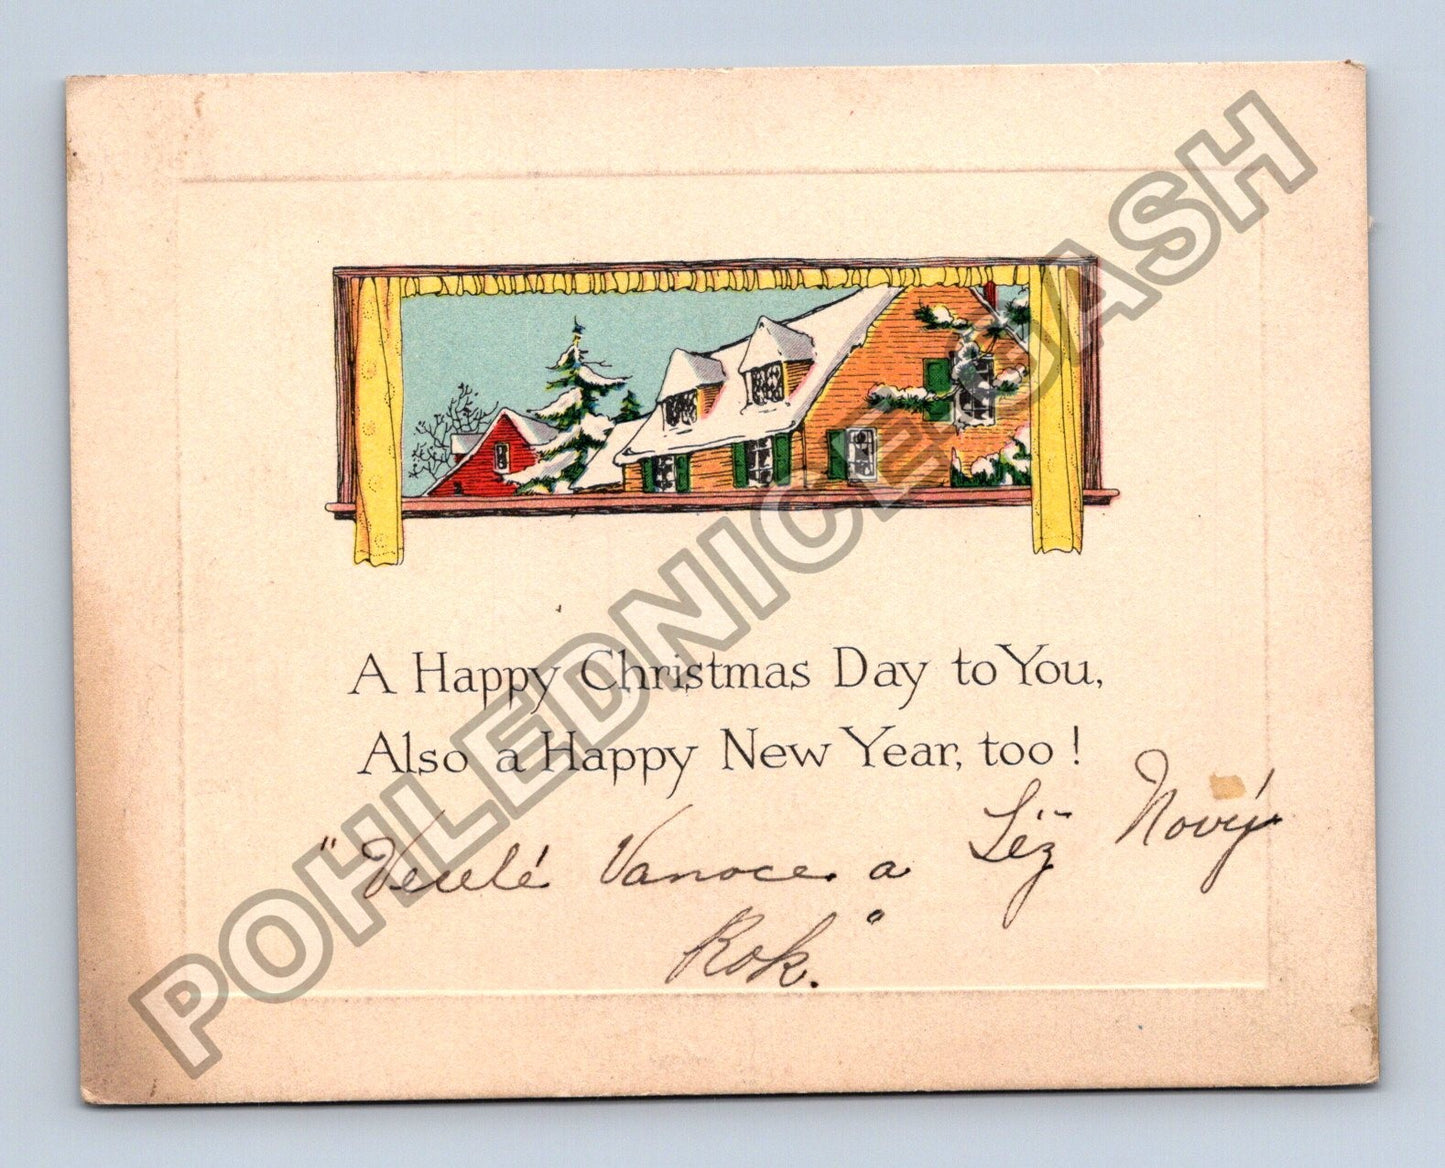 A Happy Christmas Day to You,
Also a Happy New Year, too !
"Veselé Vanoce a Nový
Rok."
POHLEDNICE SASH